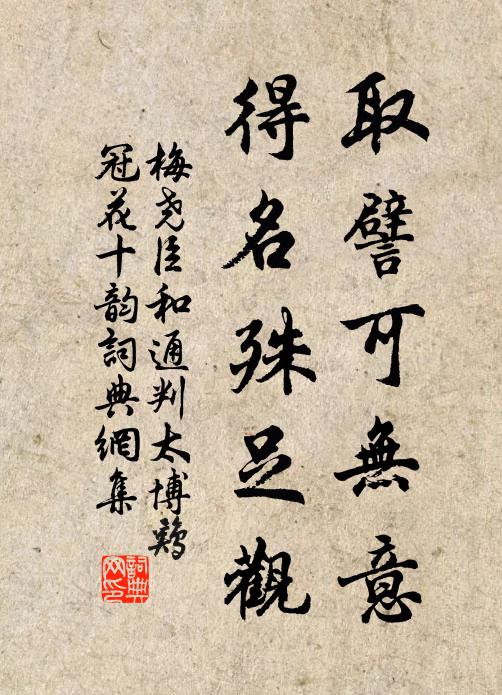 取譬可無意
得名殊足觀
梅尧臣和通判太博鷄
冠花十韵詞典網集
詞典網印